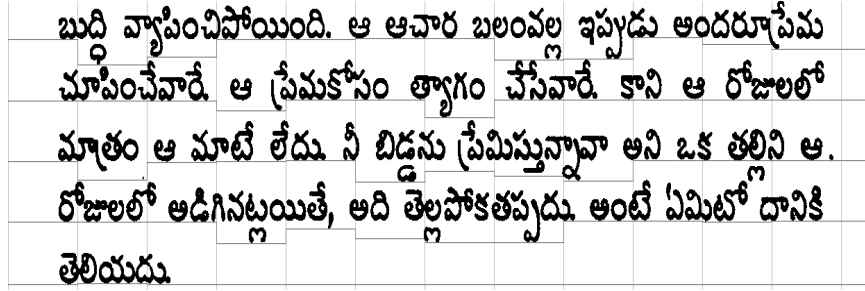 బుద్ధి వ్యాపించిపోయింది. ఆ ఆచార బలంవల్ల ఇప్పుడు అందరూప్రేమ
చూపించేవారే. ఆ ప్రేమకోసం త్యాగం చేసేవారే. కాని ఆ రోజులలో
మాత్రం ఆ మాటే లేదు. నీ బిడ్డను ప్రేమిస్తున్నావా అని ఒక తల్లిని ఆ.
రోజులలో అడిగినట్లయితే, అది తెల్లపోకతప్పదు. అంటే ఏమిటో దానికి
తెలియదు.